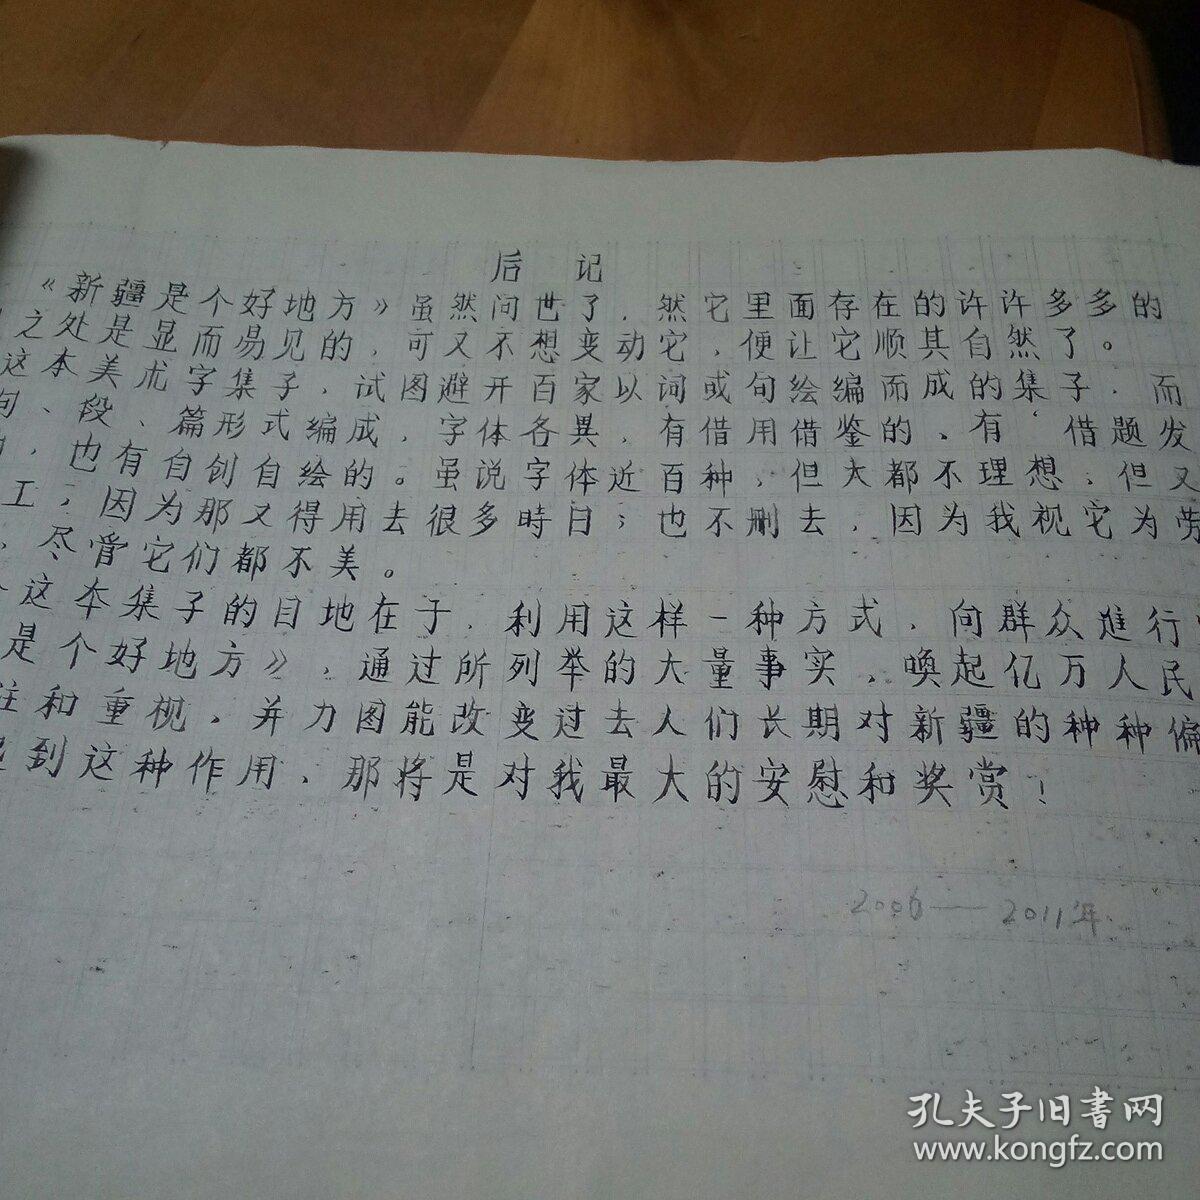 后 记
《新疆是个好地方》虽然问世了，然它里面存在的许许多多的
之处是显而易见的，可又不想变动它，便让它顺其自然了。
这本美术字集子，试图避开百家以词或句绘编而成的集子，而
句、段、篇形式编成，字体各異，有借用借鉴的、有借题发
，也有自创自绘的。虽说字体近百种，但大都不理想；但又
工，因为那又得用去很多時日；也不删去，因为我视它为劳
，尽管它们都不美。
这本集子的目地在于，利用这样一种方式，向群众進行
是个好地方》，通过所列举的大量事实，唤起亿万人民
注和重视，并力图能改变过去人们长期对新疆的种种偏
起到这种作用、那将是对我最大的安慰和奖赏！
2006——2011年.
孔夫子旧書网
www.kongfz.com